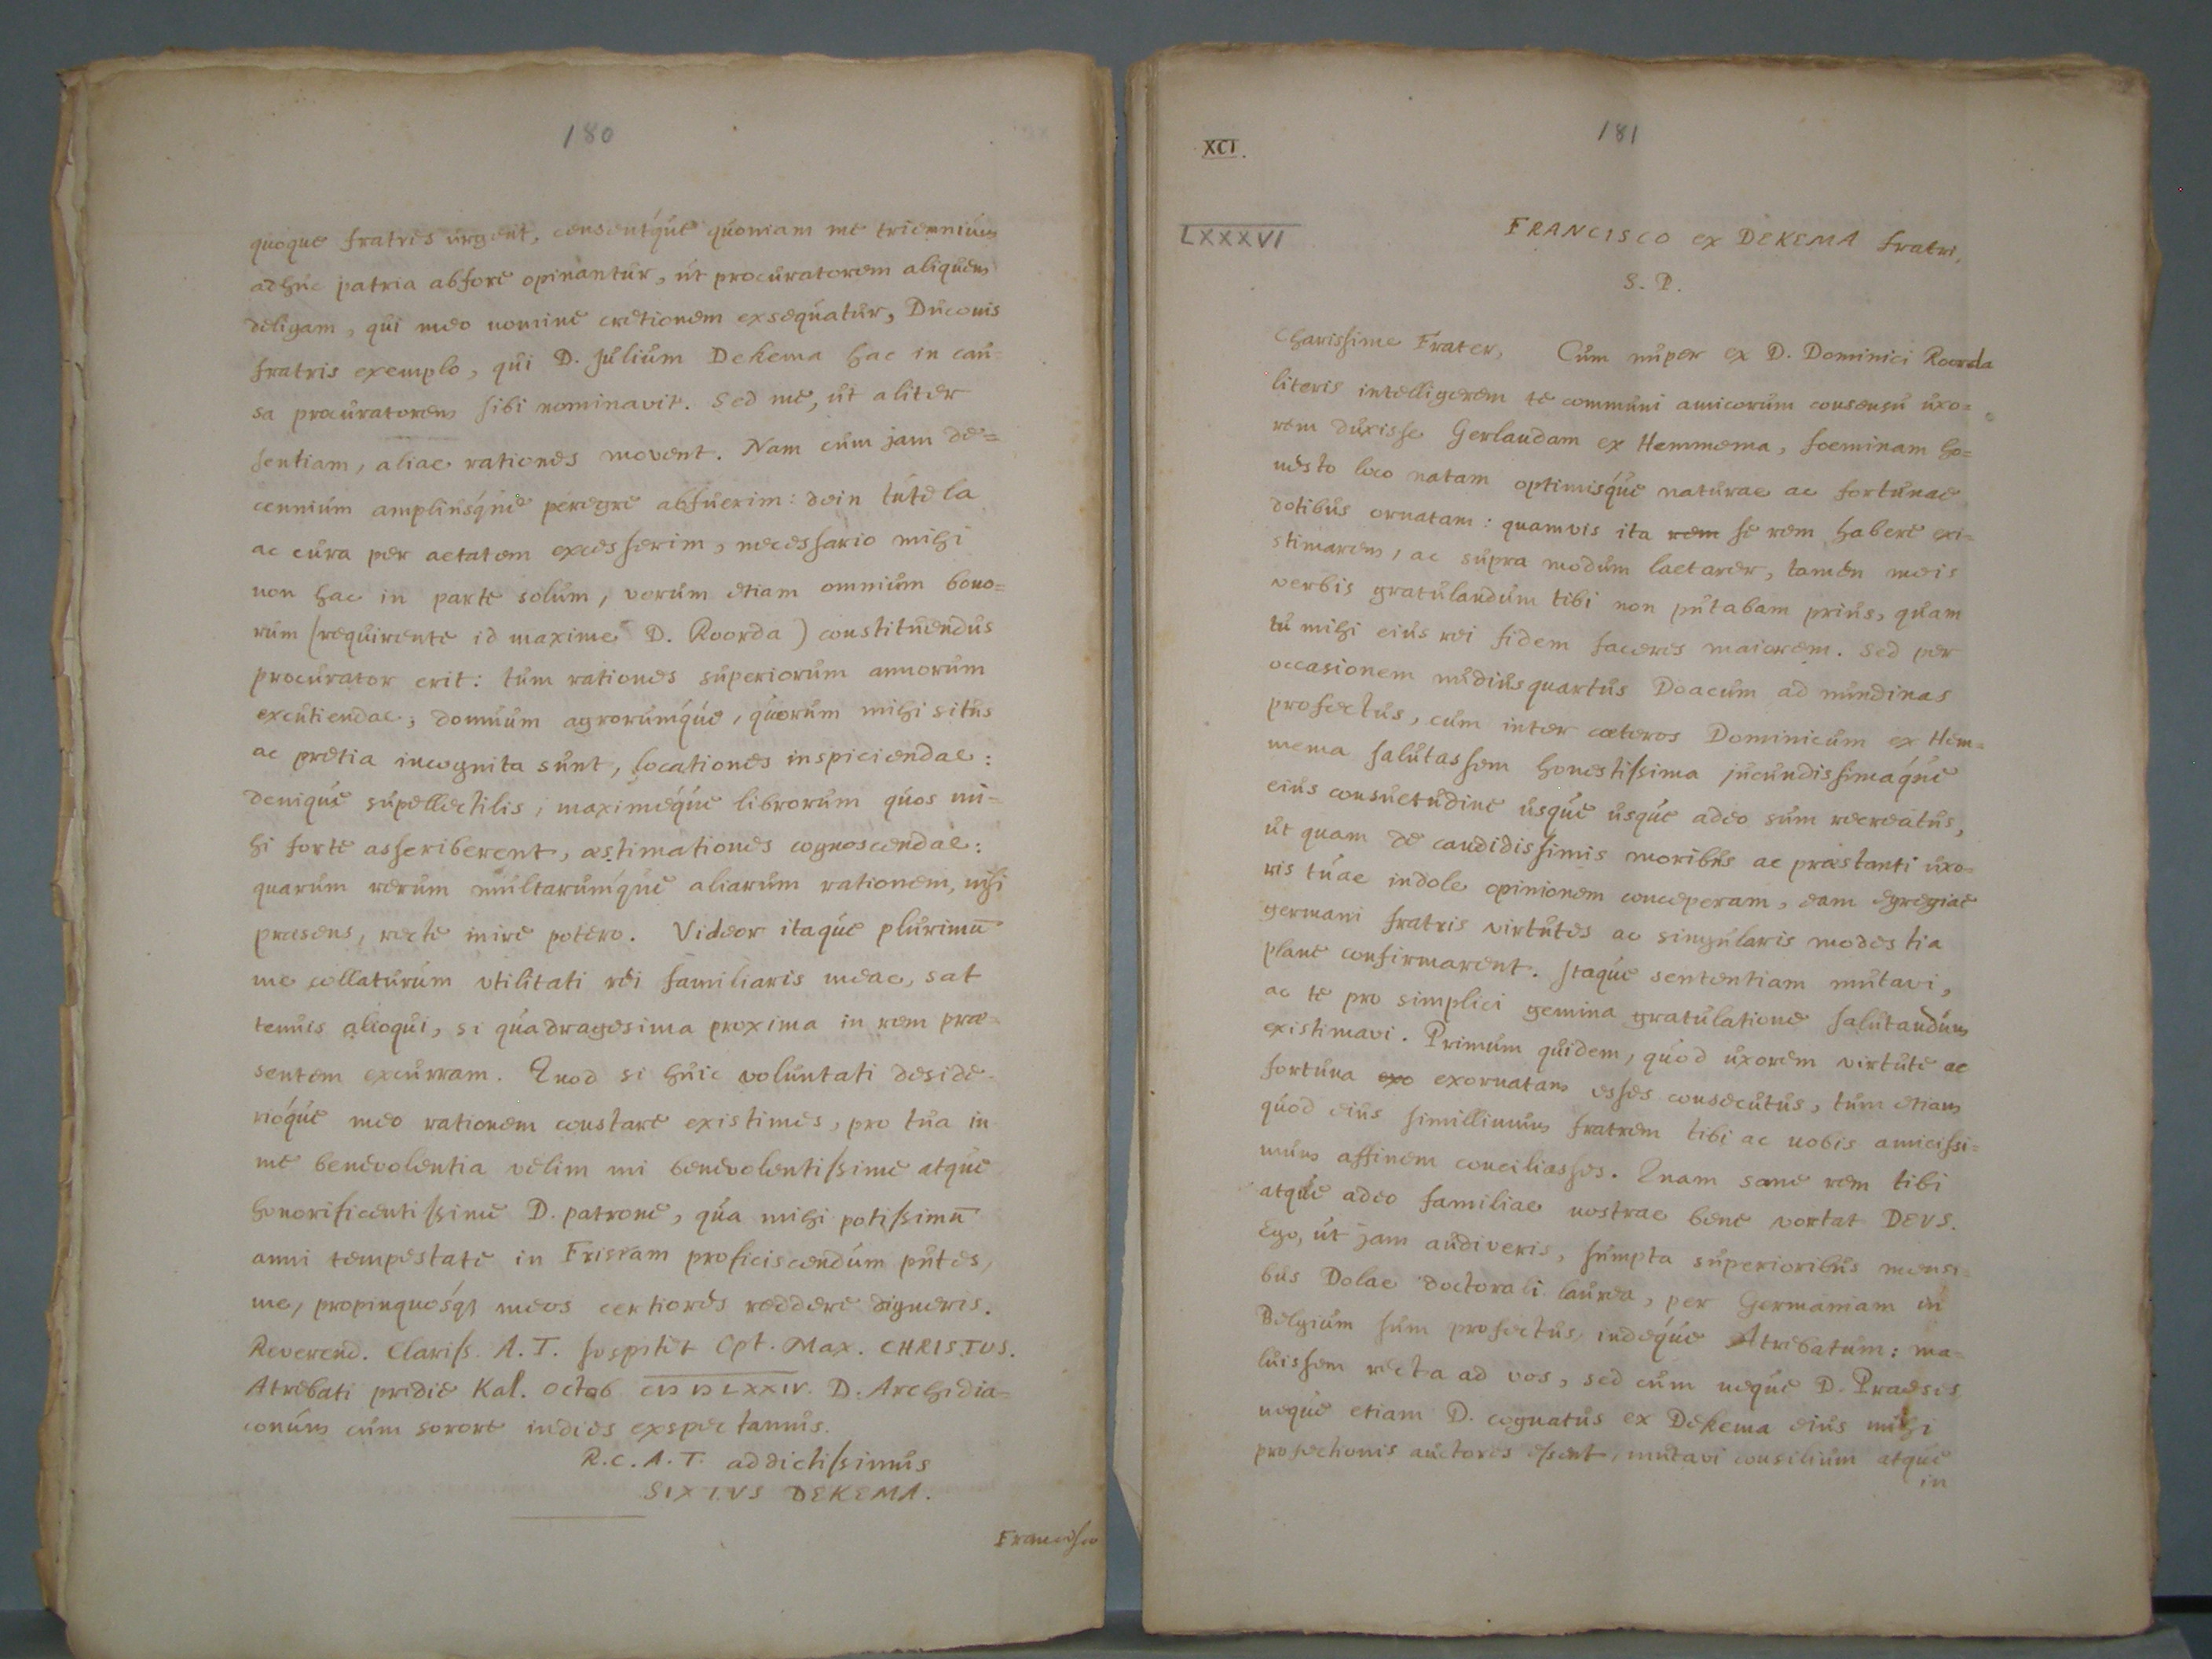 180
quoque fratres urgent, censentque quoniam me triennium
adhuc patria abfore opinantur, ut procuratorem aliquem
deligam, qui meo nomine cretionem exsequatur, Duconis
fratris exemplo, qui D. Julium Dekema hac in cau-
sa procuratorem sibi nominavit. Sed me, ut aliter
sentiam, aliae rationes movent. Nam cum jam de=
cennium ampliusque peregre abfuerim: dein tutela
ac cura per aetatem excesserim, necessario mihi
non hac in parte solum, verum etiam omnium bono=
rum (requirente id maxime D. Roorda) constituendus
procurator erit: tum rationes superiorum annorum
excutiendae; domuum agrorumque, quorum mihi situs
ac pretia incognita sunt, locationes inspiciendae:
denique supellectilis, maximeque librorum quos mi-
hi forte asscriberent, aestimationes cognoscendae:
quarum rerum multarumque aliarum rationem, nisi
praesens, recte inire potero. Videor itaque plurimū
me collaturum utilitati rei familiaris meae, sat
tenuis alioqui, si quadragesima proxima in rem prae-
sentem excurram. Quod si huic voluntati deside-
rioque meo rationem constare existimes, pro tua in
me benevolentia velim mi benevolentissime atque
honorificentissime D. patrone, qua mihi potissimū
anni tempestate in Frisiam proficiscendum putes,
me, propinquosq; meos certiores reddere digneris.
Reverend. Clariss. A. T. sospitet Opt. Max. CHRISTUS.
Atrebati pridie Kal. Octob. CIƆ IƆ LXXIV. D. Archidia=
conum cum sorore indies exspectamus.
R. C. A. T. addictissimus
SIXTVS DEKEMA.
Francisco
181
XCI.
LXXXVI
FRANCISCO ex DEKEMA fratri,
S. P.
Charissime Frater, Cum nuper ex D. Dominici Roorda
literis intelligerem te communi amicorum consensu uxo=
rem duxisse Gerlandam ex Hemmema, foeminam ho=
nesto loco natam optimisque naturae ac fortunae
dotibus ornatam: quamvis ita rem se rem habere exi-
stimarem, ac supra modum laetarer, tamen meis
verbis gratulandum tibi non putabam prius, quam
tu mihi eius rei fidem faceres maiorem. Sed per
occasionem nudiusquartus Doacum ad nundinas
profectus, cum inter caeteros Dominicum ex Hem=
mema salutassem honestissima jucundissimaque
eius consuetudine usque usque adeo sum recreatus,
ut quam de candidissimis moribus ac praestanti uxo-
ris tuae indole opinionem conceperam, eam egregiae
germani fratris virtutes ac singularis modestia
plane confirmarent. Itaque sententiam mutavi,
ac te pro simplici gemina gratulatione salutandum
existimavi. Primum quidem, quod uxorem virtute ac
fortuna exo exornatam esses consecutus, tum etiam
quod eius simillimum fratrem tibi ac nobis amicissi=
mum affinem conciliasses. Quam sane rem tibi
atque adeo familiae nostrae bene vortat DEVS.
Ego, ut jam audiveris, sumpta superioribus mensi-
bus Dolae doctorali laurea, per Germaniam in
Belgium sum profectus, indeque Atrebatum: ma-
luissem recta ad vos, sed cum neque D. Praeses
neque etiam D. cognatus ex Dekema eius mihi
profectionis auctores essent, mutavi consilium atque
in